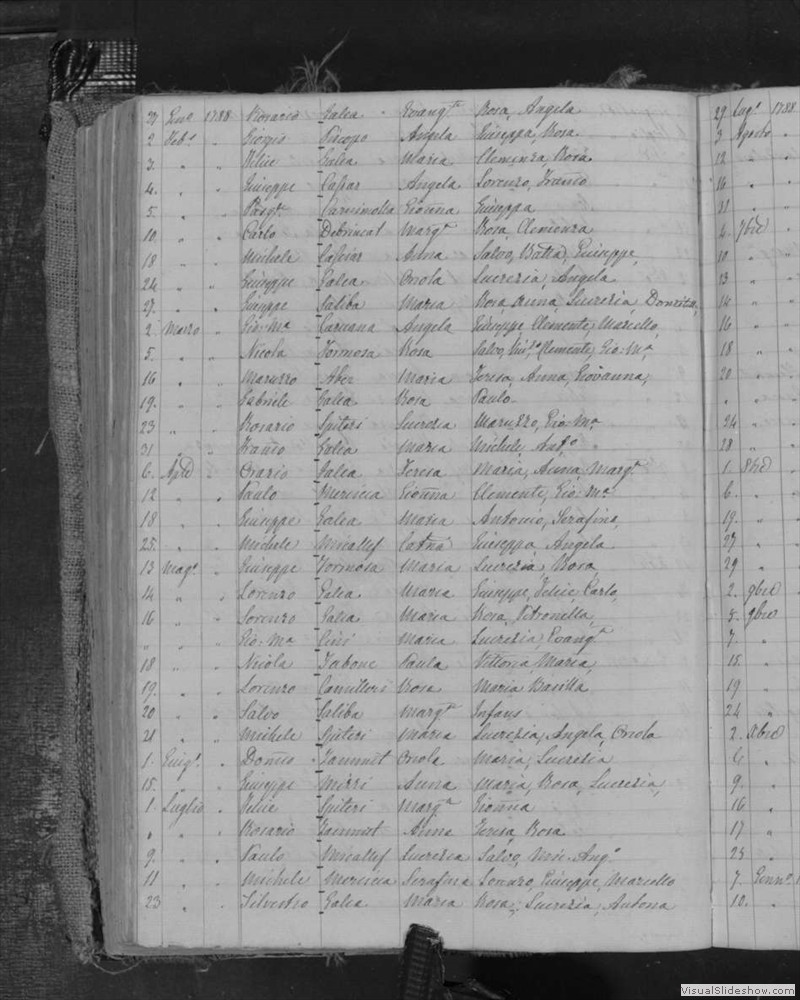 27 Genn. 1788 Rosario Galea Evang.ta Rosa, Angela
2 Feb. " Giorgio Piscopo Angela Giuseppa, Rosa
3. " " Felice Galea Maria Clemenza, Rosa
4. " " Giuseppe Caspar Angela Lorenzo, Franco
5. " " Carminolla Gioanna Giuseppa
10. " " Carlo Debrincat Marg.ta Rosa, Clemenza
18 " " Michele Anna Salvo, Batta, Giuseppe,
24 " " Giuseppe Galea Onola Lucrezia, Angela
27. " " Giuseppe Saliba Maria Rosa, Anna, Lucrezia, Donzita,
2 Marzo " Gio: Ma Caruana Angela Giuseppe, Clemente, Marcello,
5. " " Nicola Formosa Rosa Salvo, Clemente, Gio: Ma,
16 " " Maruzzo Aber Maria Teresa, Anna, Giovanna,
19. " " Gabriele Galea Rosa Paulo
23 " " Rosario Spiteri Lucrezia Maruzzo, Gio: Ma
31 " " Franco Galea Maria Michele, Anto
6. Aple " Orazio Galea Teresa Maria, Anna, Marg.ta
12 " " Paulo Mercieca Gioanna Clemente, Gio: Ma
18 " " Giuseppe Galea Maria Antonio, Serafino,
25. " " Michele Micallef Catna Giuseppa, Angela
13 Mago " Giuseppe Formosa Maria Lucrezia, Rosa
14 " " Lorenzo Galea Maria Giuseppe, Felice, Carlo,
16 " " Lorenzo Galea Maria Rosa, Petronella,
" " " Gio: Ma Cini Maria Lucrezia, Evang.ta
18 " " Nicola Tabone Paula Vittoria, Maria,
19. " " Lorenzo Camilleri Rosa Maria Basilla
20 " " Salvo Saliba Marg.ta Infans
21 " " Michele Spiteri Maria Lucrezia, Angela, Onola
1. Giugo " Donico Tammut Onola Maria, Lucrezia
15. " " Giuseppe Mizzi Anna Maria, Rosa, Lucrezia,
1. Luglio " Felice Spiteri Marg.ta Gioanna
" " " Rosario Tammut Anna Teresa, Rosa
9. " " Paulo Micallef Lucrezia Salvo, Mic: Ang.o
11 " " Michele Mercieca Serafina Giuseppe, Marcello
23 " " Silvestro Galea Maria Rosa, Lucrezia, Antona
29 Lug. 1788
3 Agosto "
12 " "
16 " "
31 " "
4. 7bre "
10 " "
13 " "
14 " "
16 " "
18 " "
20 " "
" " "
24 " "
28 " "
1. 8bre "
6. " "
19. " "
27 " "
29 " "
2. 9bre "
5. 9bre
7. "
15. "
19 "
24 "
2. Xbre
6 "
9. "
16 "
17 "
25 "
7. Genn.
10. "
VisualSlideshow.com